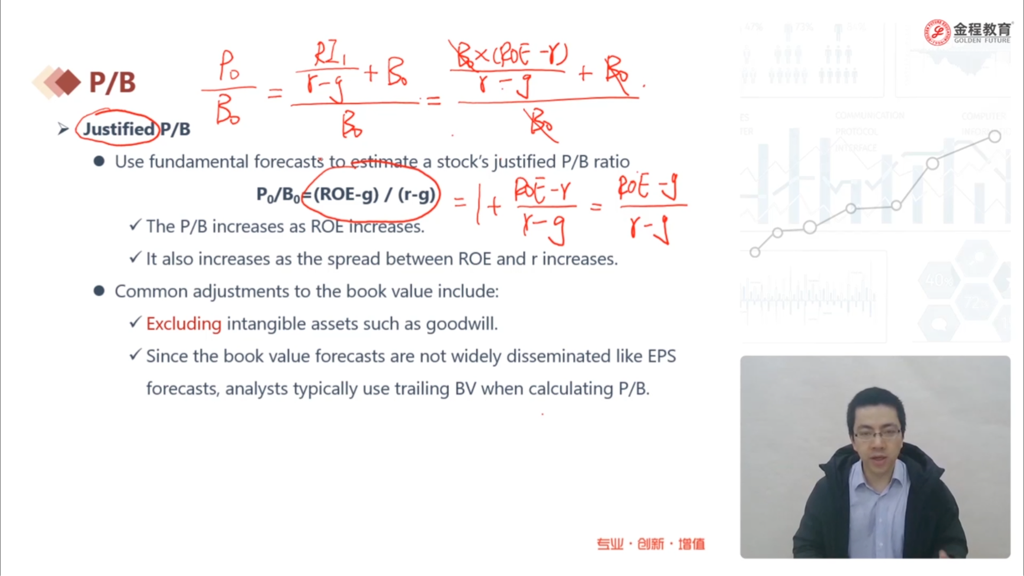 金程教育
GOLDEN FUTURE
P/B
P₀/B₀ = (RI₁/(r-g) + B₀)/B₀ = (B₀×(ROE-r)/(r-g) + B₀)/B₀
➢ Justified P/B
● Use fundamental forecasts to estimate a stock's justified P/B ratio
P₀/B₀=(ROE-g) / (r-g) = 1 + (ROE-r)/(r-g) = (ROE-g)/(r-g)
✓ The P/B increases as ROE increases.
✓ It also increases as the spread between ROE and r increases.
● Common adjustments to the book value include:
✓ Excluding intangible assets such as goodwill.
✓ Since the book value forecasts are not widely disseminated like EPS
forecasts, analysts typically use trailing BV when calculating P/B.
专业·创新·增值